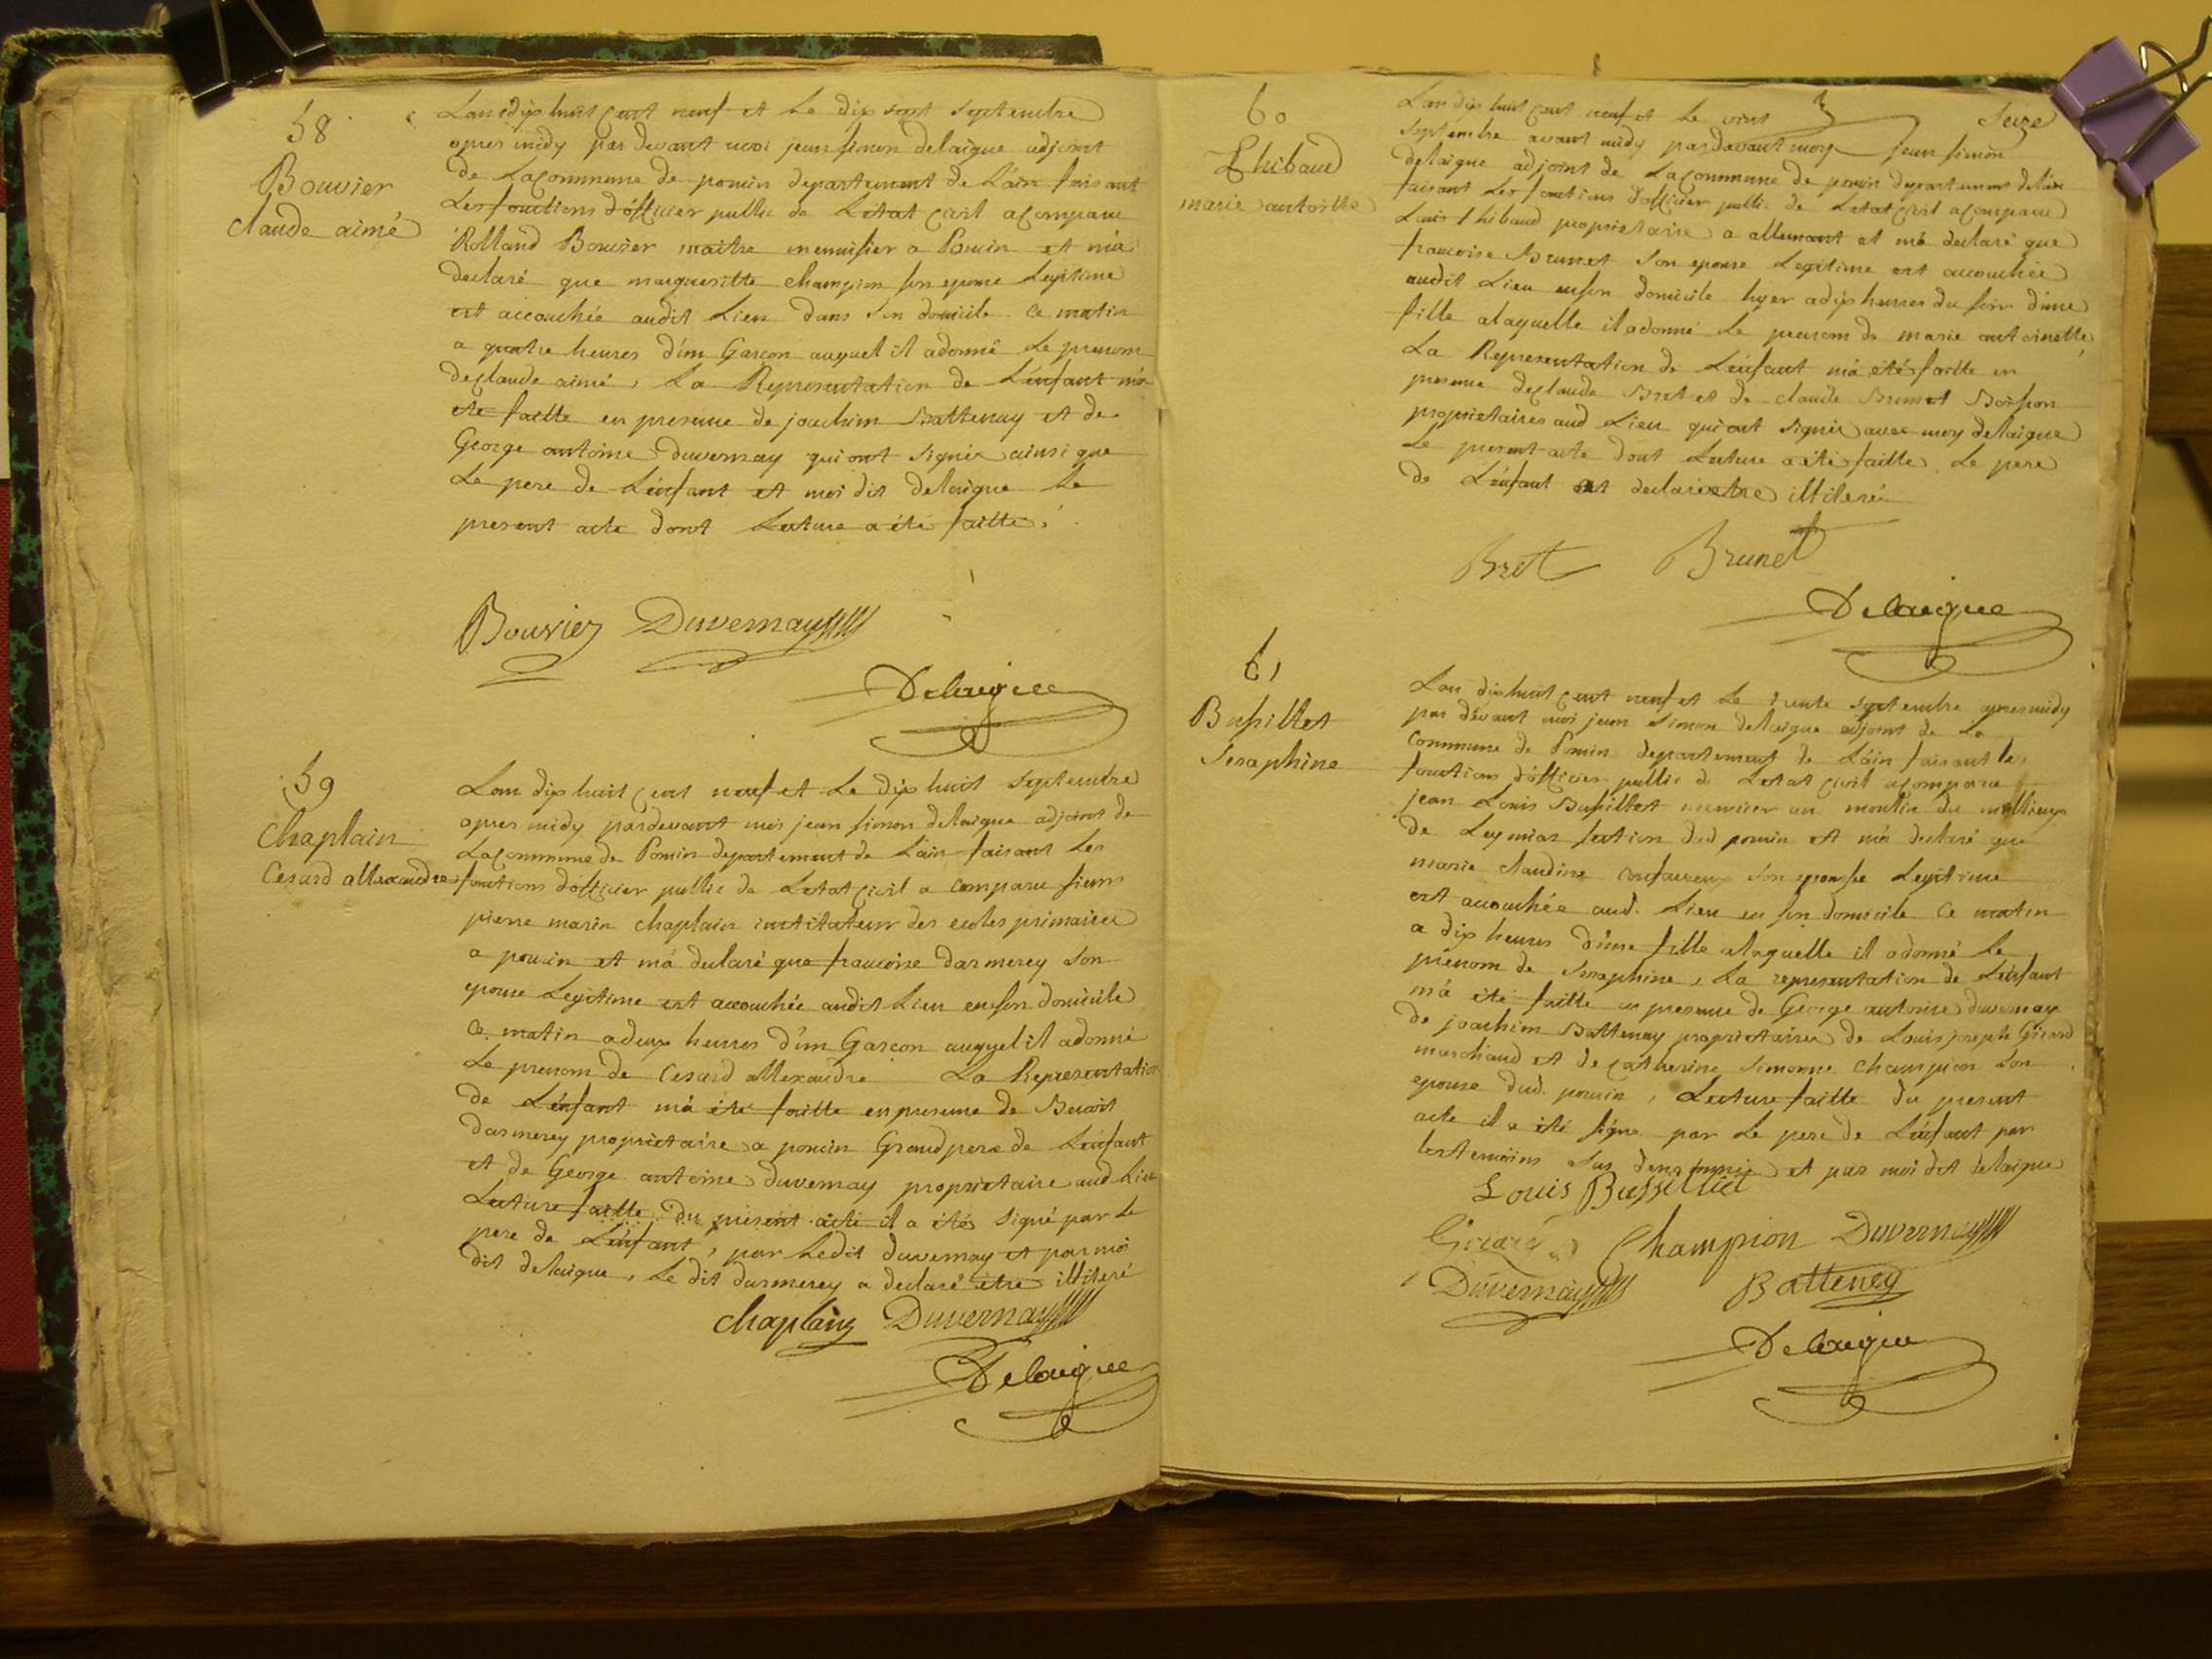 58
Bouvier
claude aimé
Lan dix huit cent neuf et le dix sept septembre
apres midy par devant moi jean simon delaigue adjoint
de La Commune de poncin departement de L'ain faisant
Les fonctions d'officier public de Letat Civil a Comparu
Rolland Bouvier maitre menuisier a Poncin et m'a
declaré que margueritte champion son epouse Legitime
est accouchée audit Lieu dans son domicile ce matin
a quatre heures d'un Garcon auquel il a donné Le prenom
de Claude aimé, La Representation de L'enfant m'a
été faitte en presence de joachim Battenay et de
George antoine duvernay qui ont signés ainsi que
Le pere de L'enfant et moi dit delaigue Le
present acte dont Lecture a été faitte.
Bouvier Duvernay
Delaigue
59
Chaplain
Cesard allexandre
Lan dix huit cent neuf et Le dix huit septembre
apres midy pardevant moi jean simon delaigue adjoint de
La Commune de Poncin departement de L'ain faisant Les
fonctions d'officier public de Letat Civil a comparu sieur
pierre marin chaplain institateur des ecoles primaires
a poncin et m'a declaré que francoise darmerey son
epouse Legitime est accouchée audit Lieu en son domicile
ce matin a deux heures d'un Garcon auquel il a donné
Le prenom de Cesard allexandre La Representation
de L'enfant m'a été faitte en presence de Benoit
darmerey propriétaire a poncin Grand pere de L'enfant
et de George antoine duvernay propriétaire aud Lieu
Lecture faitte du present acte il a étés signé par Le
pere de L'enfant, par Ledit duvernay et par moi
dit delaigue, Le dit darmerey a declaré etre illiteré
chaplain Duvernay
Delaigue
Seize
60
Thibaud
marie antoinette
Lan dix huit cent neuf et Le vint
septembre avant midy pardevant moy jean simon
delaigue adjoint de La Commune de poncin departement de l'ain
faisant Les fonctions d'officier public de Letat Civil a Comparu
Louis thibaud propriétaire a allement et m'a declaré que
francoise Brunet son epouse Legitime est accouchée
audit Lieu en son domicile hyer a dix heures du soir d'une
fille a laquelle il a donné Le prenom de marie antoinette,
La Representation de L'enfant m'a été faitte en
presence de Claude Bret et de claude Brunet
propriétaires aud Lieu qui ont signés avec moy delaigue
Le present acte dont Lecture a été faitte. Le pere
de L'enfant a declaré etre illiteré
Bret Brunet
Delaigue
61
Bussillet
Seraphine
Lan dix huit cent neuf et Le trente septembre apres midy
par devant moi jean simon delaigue adjoint de La
commune de Poncin departement de L'ain faisant les
fonctions d'officier public de Letat Civil a comparu
jean Louis Bussillet meunier au moulin du millieux
de Leymiat section dud poncin et m'a declaré que
marie claudine son epouse Legitime
est accouchée aud. Lieu en son domicile ce matin
a dix heures d'une fille a laquelle il a donné Le
prenom de Seraphine, La representation de L'enfant
m'a été faitte en presence de George antoine duvernay
de joachim Battenay propriétaires de Louis joseph Girard
marchand et de Catherine simonne champion son
epouse dud. poncin, Lecture faitte du present
acte il a été signé par Le pere de L'enfant par
les temoins sus denommés et par moi dit delaigue
Louis Bussilliet
Girard Champion Duvernay
Duvernay Batteney
Delaigue